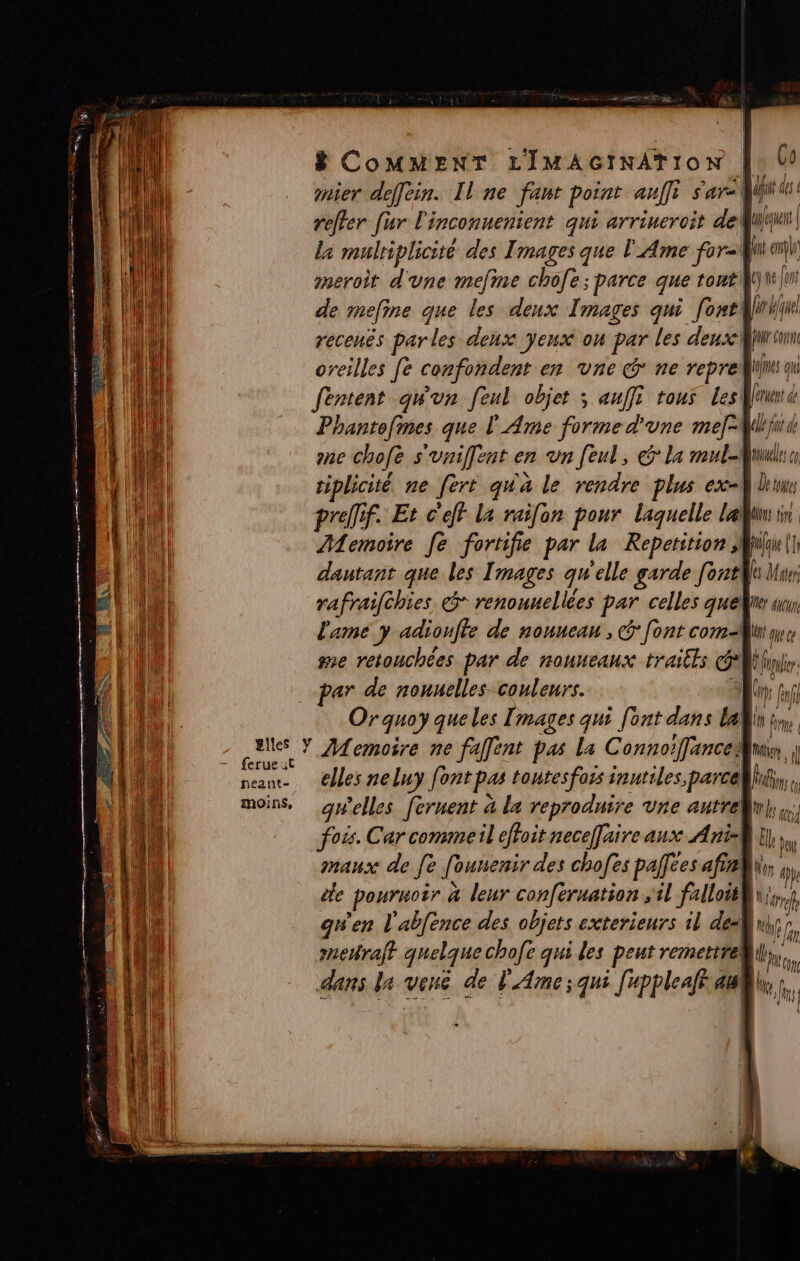 8 COMMENT L'IMAGINATION
mier deſſein. Il ne faut point auſſi s'ar-
reſter ſur l'inconuenient qui arriueroit de
la multiplicité des Images que l'Ame for-
meroit d'vne meſme choſe; parce que tout
de meſme que les deux Images qui ſont
receuës par les deux yeux ou par les deux
oreilles ſe confondent en vne & ne repre
ſentent qu'vn ſeul objet ; auſſi tous les
Phantoſmes que l'Ame forme d'vne meſ-
me choſe s'vniſſent en vn ſeul, & la mul-
tiplicité ne ſert qu'à le rendre plus ex-
preſſif. Et c'eſt la raiſon pour laquelle la
Memoire ſe fortifie par la Repetition ,
dautant que les Images qu'elle garde ſont
rafraiſchies & renouuellées par celles que
l'ame y adiouſte de nouueau, & ſont com-
me retouchées par de nouueaux traicts &
par de nouuelles couleurs.
Or quoy que les Images qui ſont dans la
Elles y Memoire ne faſſent pas la Connoiſſance
ſeruent
neant- elles ne luy ſont pas toutesfois inutiles, parce
moins, qu'elles ſeruent à la reproduire vne autre
fois. Car comme il eſtoit neceſſaire aux Ani-
maux de ſe ſouuenir des choſes paſſées afin
de pouruoir à leur conſeruation , il falloit
qu'en l'abſence des objets exterieurs il de-
meuraſt quelque choſe qui les peut remettre
dans la veuë de l'Ame; qui ſuppleaſt au